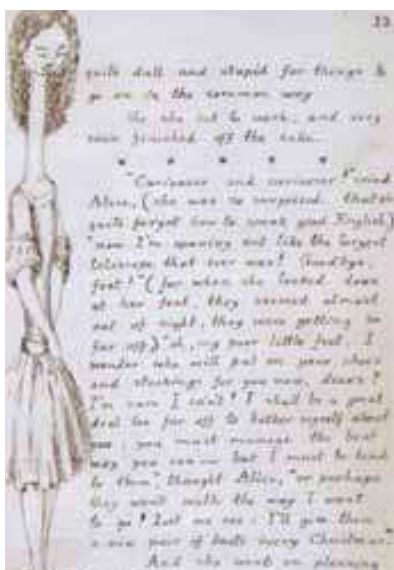 23
quite dull and stupid for things to
go on in the common way.
So she set to work, and very
soon finished off the cake.
* * * * *
"Curiouser and curiouser!" cried
Alice, (she was so surprised that she
quite forgot how to speak good English,)
"now I'm opening out like the largest
telescope that ever was! Goodbye,
feet!" (for when she looked down
at her feet, they seemed almost
out of sight, they were getting so
far off,) "oh, my poor little feet, I
wonder who will put on your shoes
and stockings for you now, dears?
I'm sure I can't! I shall be a great
deal too far off to bother myself about
you: you must manage the best
way you can — but I must be kind
to them", thought Alice, "or perhaps
they won't walk the way I want
to go! Let me see: I'll give them
a new pair of boots every Christmas."
And she went on planning